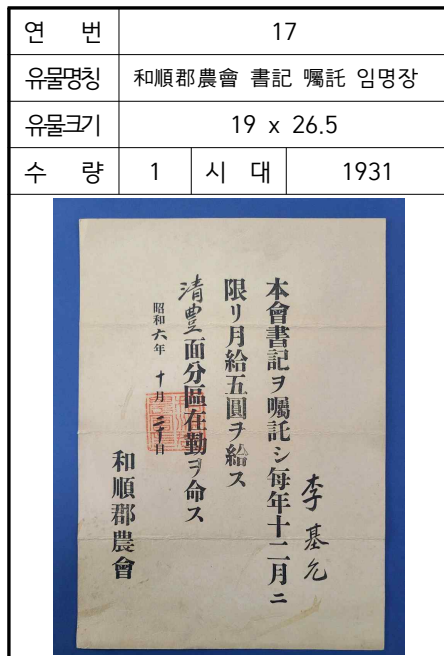 연 번 17
유물명칭 和順郡農會 書記 囑託 임명장
유물크기 19 x 26.5
수 량 1 시 대 1931
李基允
本會書記ヲ囑託シ每年十二月ニ
限リ月給五圓ヲ給ス
清豊面分區在勤ヲ命ス
昭和六年 十月 二十日
和順郡農會